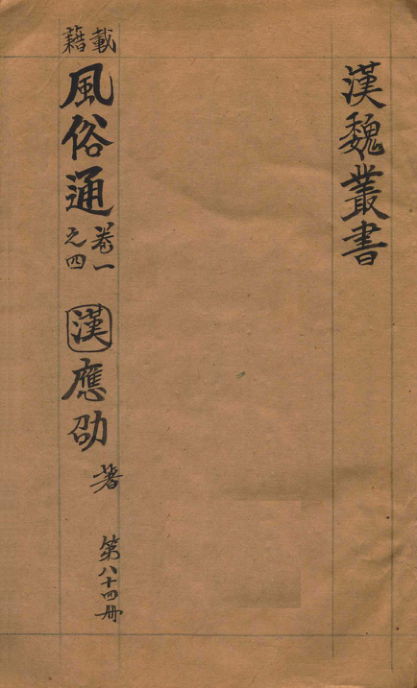 漢魏叢書
載籍
風俗通
卷一之四
漢應劭
著
第八十四冊